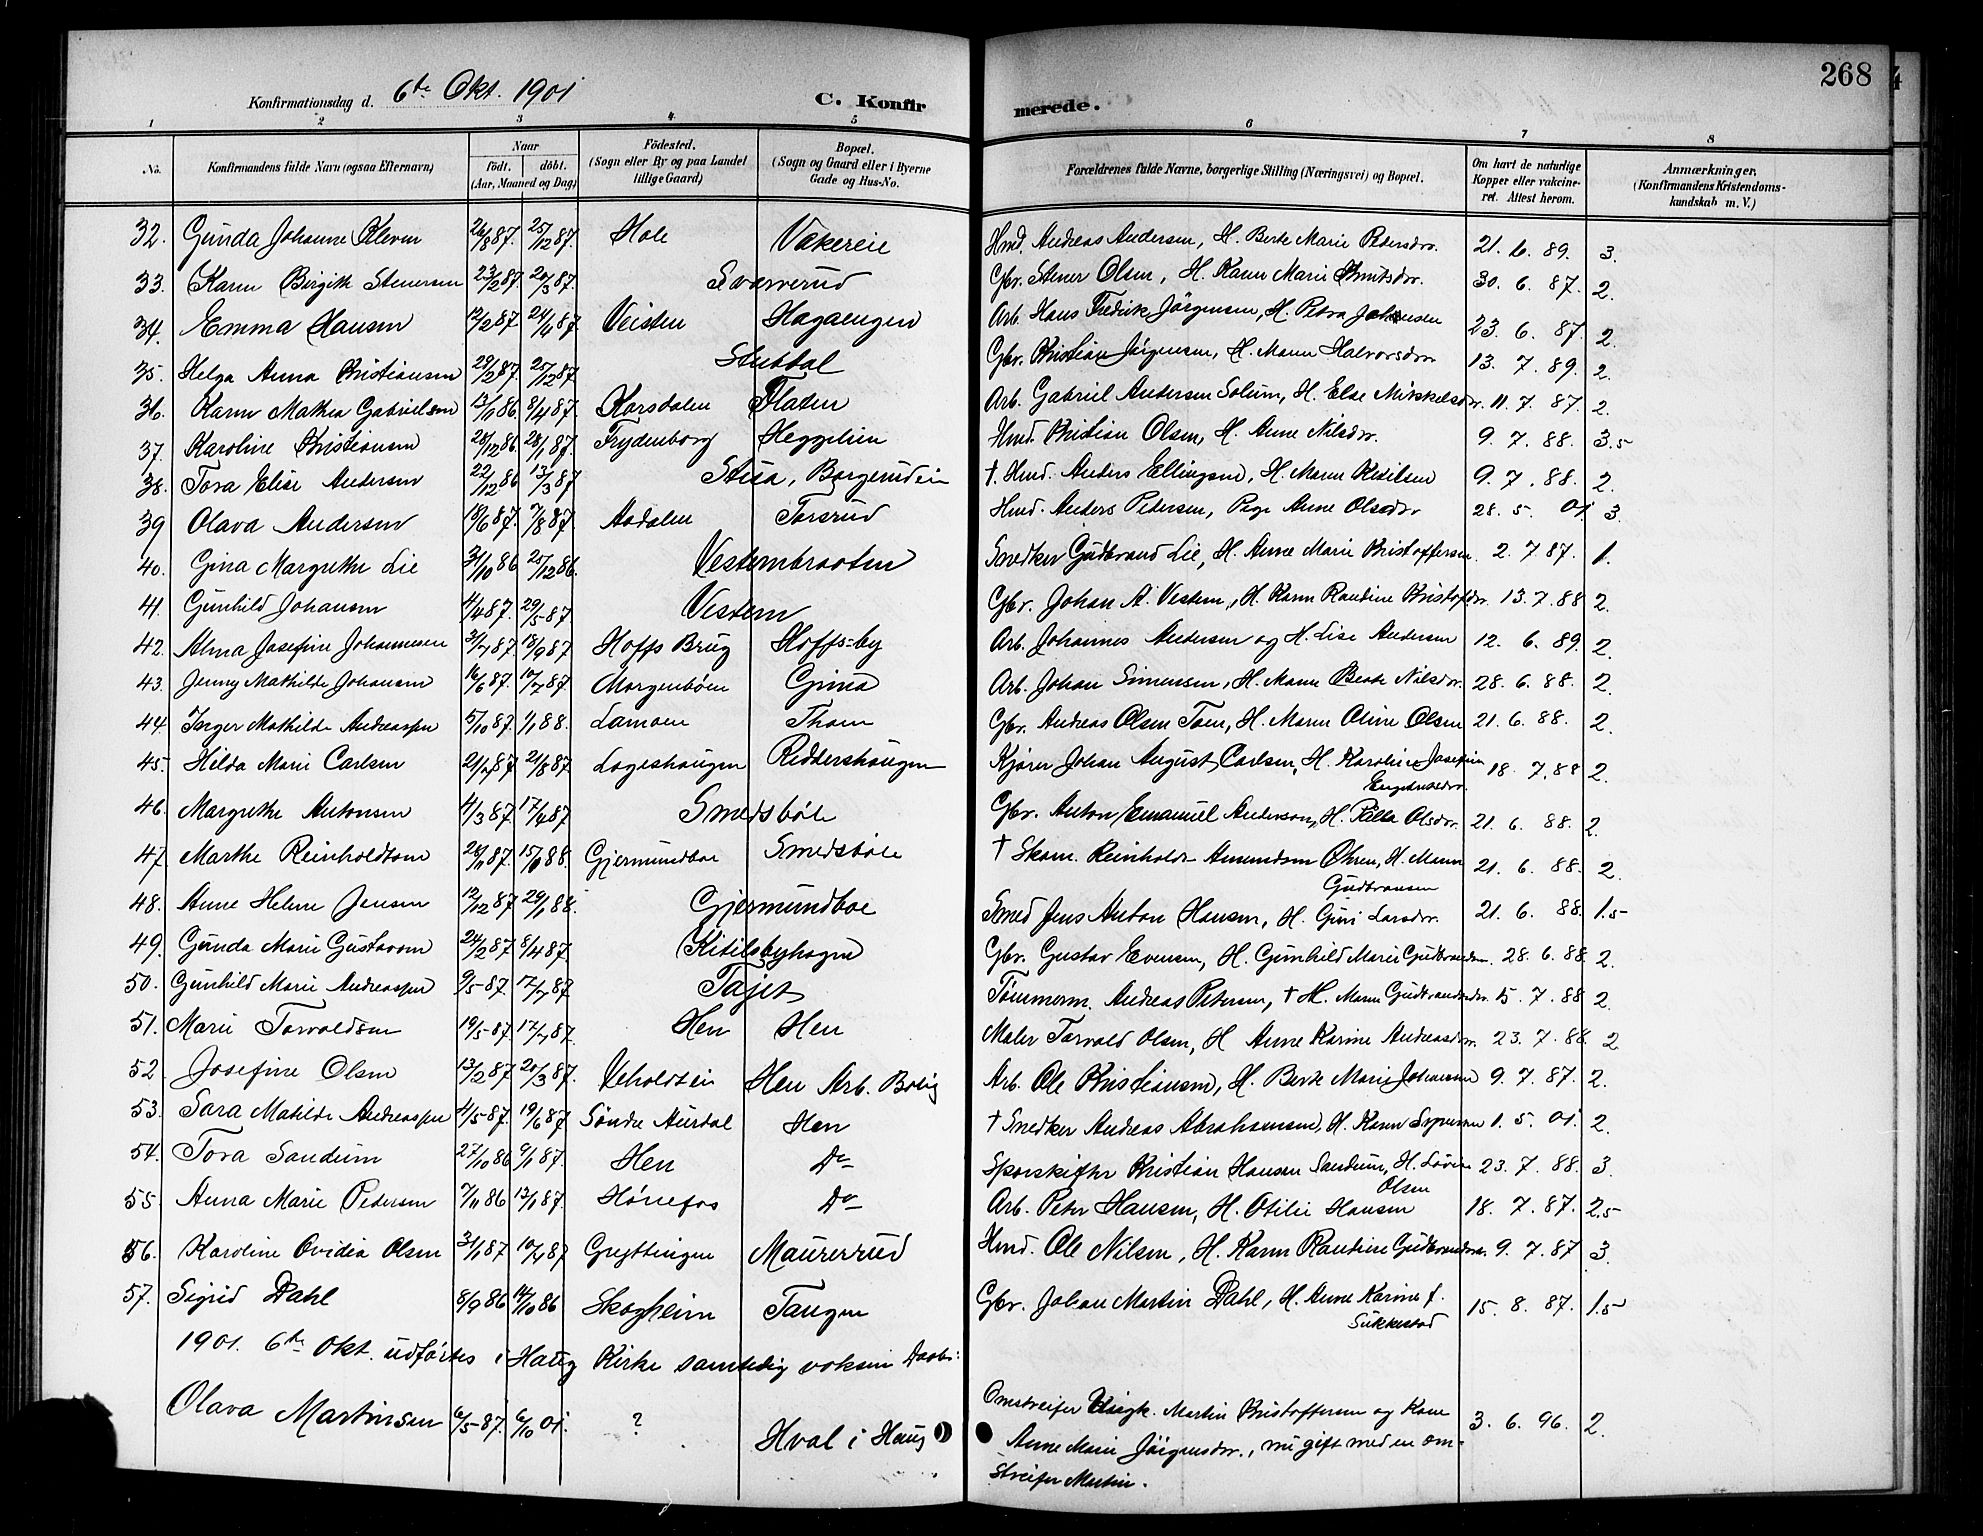 268
Konfirmationsdag d. 6te Okt. 1901
C. Konfir
merede.
1 2 3 4 5 6 7 8
No. Konfirmandens fulde Navn (ogsaa Efternavn) Naar födt. döbt. (Aar, Maaned og Dag) Födested. (Sogn eller By og paa Landet tillige Gaard) Bopæl. (Sogn og Gaard eller i Byerne Gade og Hus-No. Forældrenes fulde Navne, borgerlige Stilling (Næringsvei) og Bopæl. Om havt de naturlige Kopper eller vakcineret. Attest herom. Anmærkninger. (Konfirmandens Kristendomskundskab m. V.)
32. Gunda Johanne Kleven 26/8 87. 25/12 87. Hole Vakereie Hmd. Andreas Andersen, H. Berte Marie Pedersdr. 21. 6. 89. 3.
33. Karen Birgitte Stenersen 23/2 87. 20/3 87. Sværverud Gbr. Stener Olsen, H. Karen Marie Knutsdr. 30. 6. 87. 2.
34. Emma Hansen 12/2 87. Veisten Hagaengen Arb. Hans Fredrik Jörgensen, H. Petra Johansen 23. 6. 87. 2.
35. Helga Anna Kristiansen 29/2 87. 25/12 87. Stubdal Gbr. Kristian Jörgensen, H. Maren Halvorsdr. 13. 7. 89. 2.
36. Karen Mathea Gabrielsen 13/11 86. 8/4 87. Korsdalen Flaten Arb. Gabriel Andersen Solum, H. Else Mikkelsdr. 11. 7. 87. 2.
37. Karoline Kristiansen 28/12 86. 28/1 87. Frydenborg Heggelien Hmd. Kristian Olsen, H. Anne Nilsdr. 9. 7. 88. 3.5
38. Tora Elise Andersen 22/12 86 13/3 87 Stua, Borgerudein † Hmd. Anders Ellingsen, H. Maren 9. 7. 88. 2.
39 Olava Andersen 18/6 87. 7/8 87. Aadalen Torsrud Hmd. Anders Petersen, Pige Anne Olsdr 28. 5. 01 3.
40. Gina Margrethe Lie 31/10 86 25/12 86. Vesternbraaten Snedker Gudbrand Lie, H. Anne Marie Kristoffersen 2. 7 87. 1.
41. Gunhild Johansen 4/4 87. 29/5 87. Vestern Gbr. Johan A. Vestern, H. Karen Randine Kristofdr. 13. 7. 88 2.
42. Alma Josefine Johannesen 31/7 87 18/9 87 Hoffs Brug Hoffs-by Arb. Johannes Andersen og H. Lise Andersen 12. 6. 89. 2.
43. Jenny Mathilde Johansen 16/6 87. 10/7 87. Morgenböen Gjina Arb. Johan Simensen, H. Maren Beate Nilsdr. 28. 6. 88. 2.
44. Inger Mathilde Andreassen 5/10 87. 1/1 88. Lamoen Thoen Gbr. Andreas Olsen Toen, H. Maren Oline Olsen 21. 6. 88. 2.
45. Hilda Marie Carlsen 21/8 87. Lageshaugen Reddershaugen Kjörer Johan August Carlsen, H. Karoline Josefine Engebretsdr. 18. 7. 88 2.
46. Margrethe Antonsen 4/3 87. 17/4 87 Smedsböle Gbr. Anton Emanuel Anderson, H. Olsdr. 21. 6. 88. 2.
47. Marthe Reinholdtsen 20/11 87. 88. Gjermundboe Smedsböle † Skom. Reinholdt Amundsen Öhren, H. Maren Gudbransen 21. 6. 88. 2.
48. Anne Helene Jensen 12/12 87 29/1 88. Gjermundboe Smed Jens Anton Hansen, H. Guri Larsdr. 21. 6. 88. 1.5
49. Gunda Marie Gustavsen 24/2 87. 8/4 87. Kitilsbyhagen Gbr. Gustav Evensen, H. Gunhild Marie Gudbrandsen 28. 6. 88. 2.
50. Gunhild Marie Andreassen 9/5 87. 17/7 87 Tajet Tömmerm. Andreas Petersen, † H. Maren Gudbrandsdr. 15. 7. 88 2.
51. Marie Torvaldsen 19/5 87. 17/7 87. Hen Hen Maler Torvald Olsen, H. Anne Karine Andreasdr. 23. 7. 88. 2
52. Josefine Olsen 13/2 87 20/3 87. Veholdtein Hen Arb. Bolig Arb. Ole Kristiansen, H. Berte Marie Johansen 9. 7. 87. 2.
53. Sara Matilde Andreassen 4/5 87. 19/6 87 Söndre Aurdal Hen † Snedker Andreas Abrahamsen, H. Karen Syversen 1. 5. 01. 2.
54. Tora Sandum 27/10 86 9/1 87. Hen Do Sporskifter Kristian Hansen Sandum, H. Lovise Olsen 23. 7. 88. 3.
55. Anna Marie Pedersen 7/11 86 13/1 87. Hönefos Do Arb. Peter Hansen, H. Otilie Hansen 18. 7. 87. 2.5
56. Karoline Ovidia Olsen 31/1 87 10/4 87 Gryttingen Maurerrud Hmd. Ole Nilsen, H. Karen Randine Gudbrandsdr. 9. 7. 87 3.
57. Sigrid Dahl 8/9 86 14/10 86 Skogheim Tangen Gbr. Johan Martin Dahl, H. Anne Karine f. Sukkestad 15. 8. 87. 1.5
1901. 6te Okt. udförtes i Haug Kirke samtidig voksen Daab:
Olava Martinsen 6/5 87. 6/10 01. ? Hval i Haug Omstreifer Martin Kristoffersen og Kone 3. 6. 96. 2.
Anne Marie Jörgensdr., nu gift med en om-
streifer Martin.